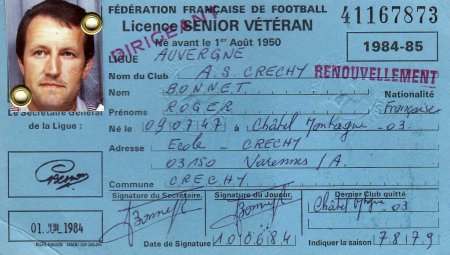 FÉDÉRATION FRANÇAISE DE FOOTBALL
41167873
Licence SENIOR VÉTÉRAN
DIRIGEANT
Né avant le 1er Août 1950
1984-85
LIGUE AUVERGNE
Nom du Club A.S CRECHY
RENOUVELLEMENT
Nom BONNET
Nationalité
Prénoms ROGER Française
Le Secrétaire Général
de la Ligue :
Né le 09.07.47 à Châtel Montagne 03
Adresse Ecole - CRECHY
03150 Varennes /A.
Commune CRECHY
Signature du Secrétaire
Signature du Joueur
Dernier Club quitté
Châtel Mgne 03
01 JUIL 1984
Date de Signature 10 06 84
Indiquer la saison 7879